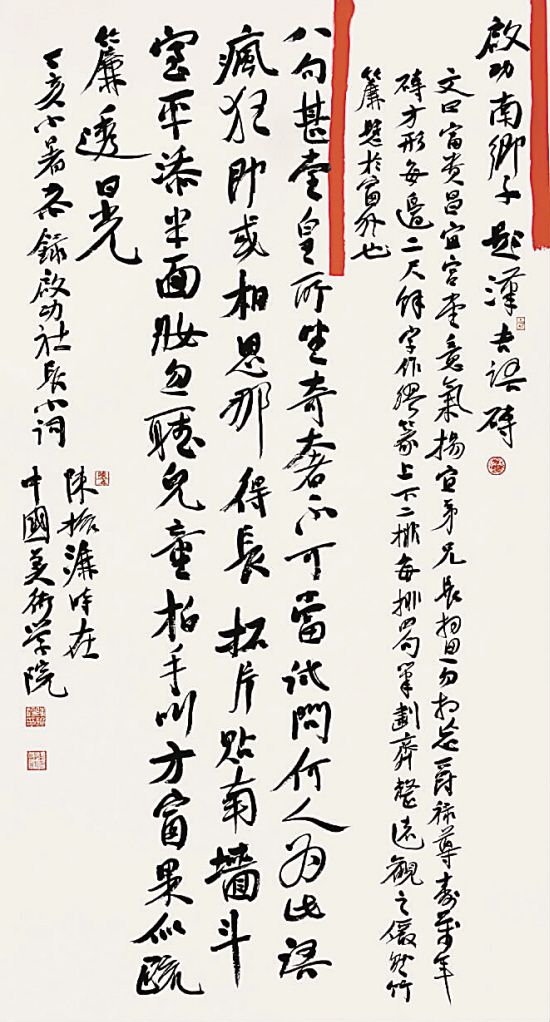 啟功南鄉子題漢吉語磚
文曰富貴昌宜宮堂意氣揚宜弟兄長相思勿相忘爵祿尊壽萬年
磚方形每邊二尺餘字作繆篆上下二排每排四句筆劃齊整遠觀之儼然竹
簾懸於窗外也
八句甚堂皇所望奇奢不可當試問何人為此語
瘋狂即或相思那得長拓片貼南墻斗
室平添半面妝勿聽兒童拍手叫方窗果似疏
簾透日光
丁亥小暑恭錄啟功社長小詞
陳振濂時在
中國美術學院